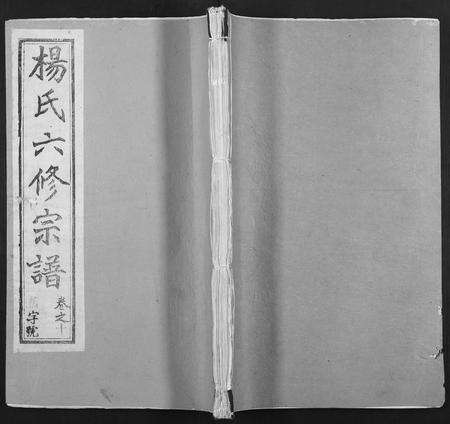 楊氏六修宗譜
卷之十
字號